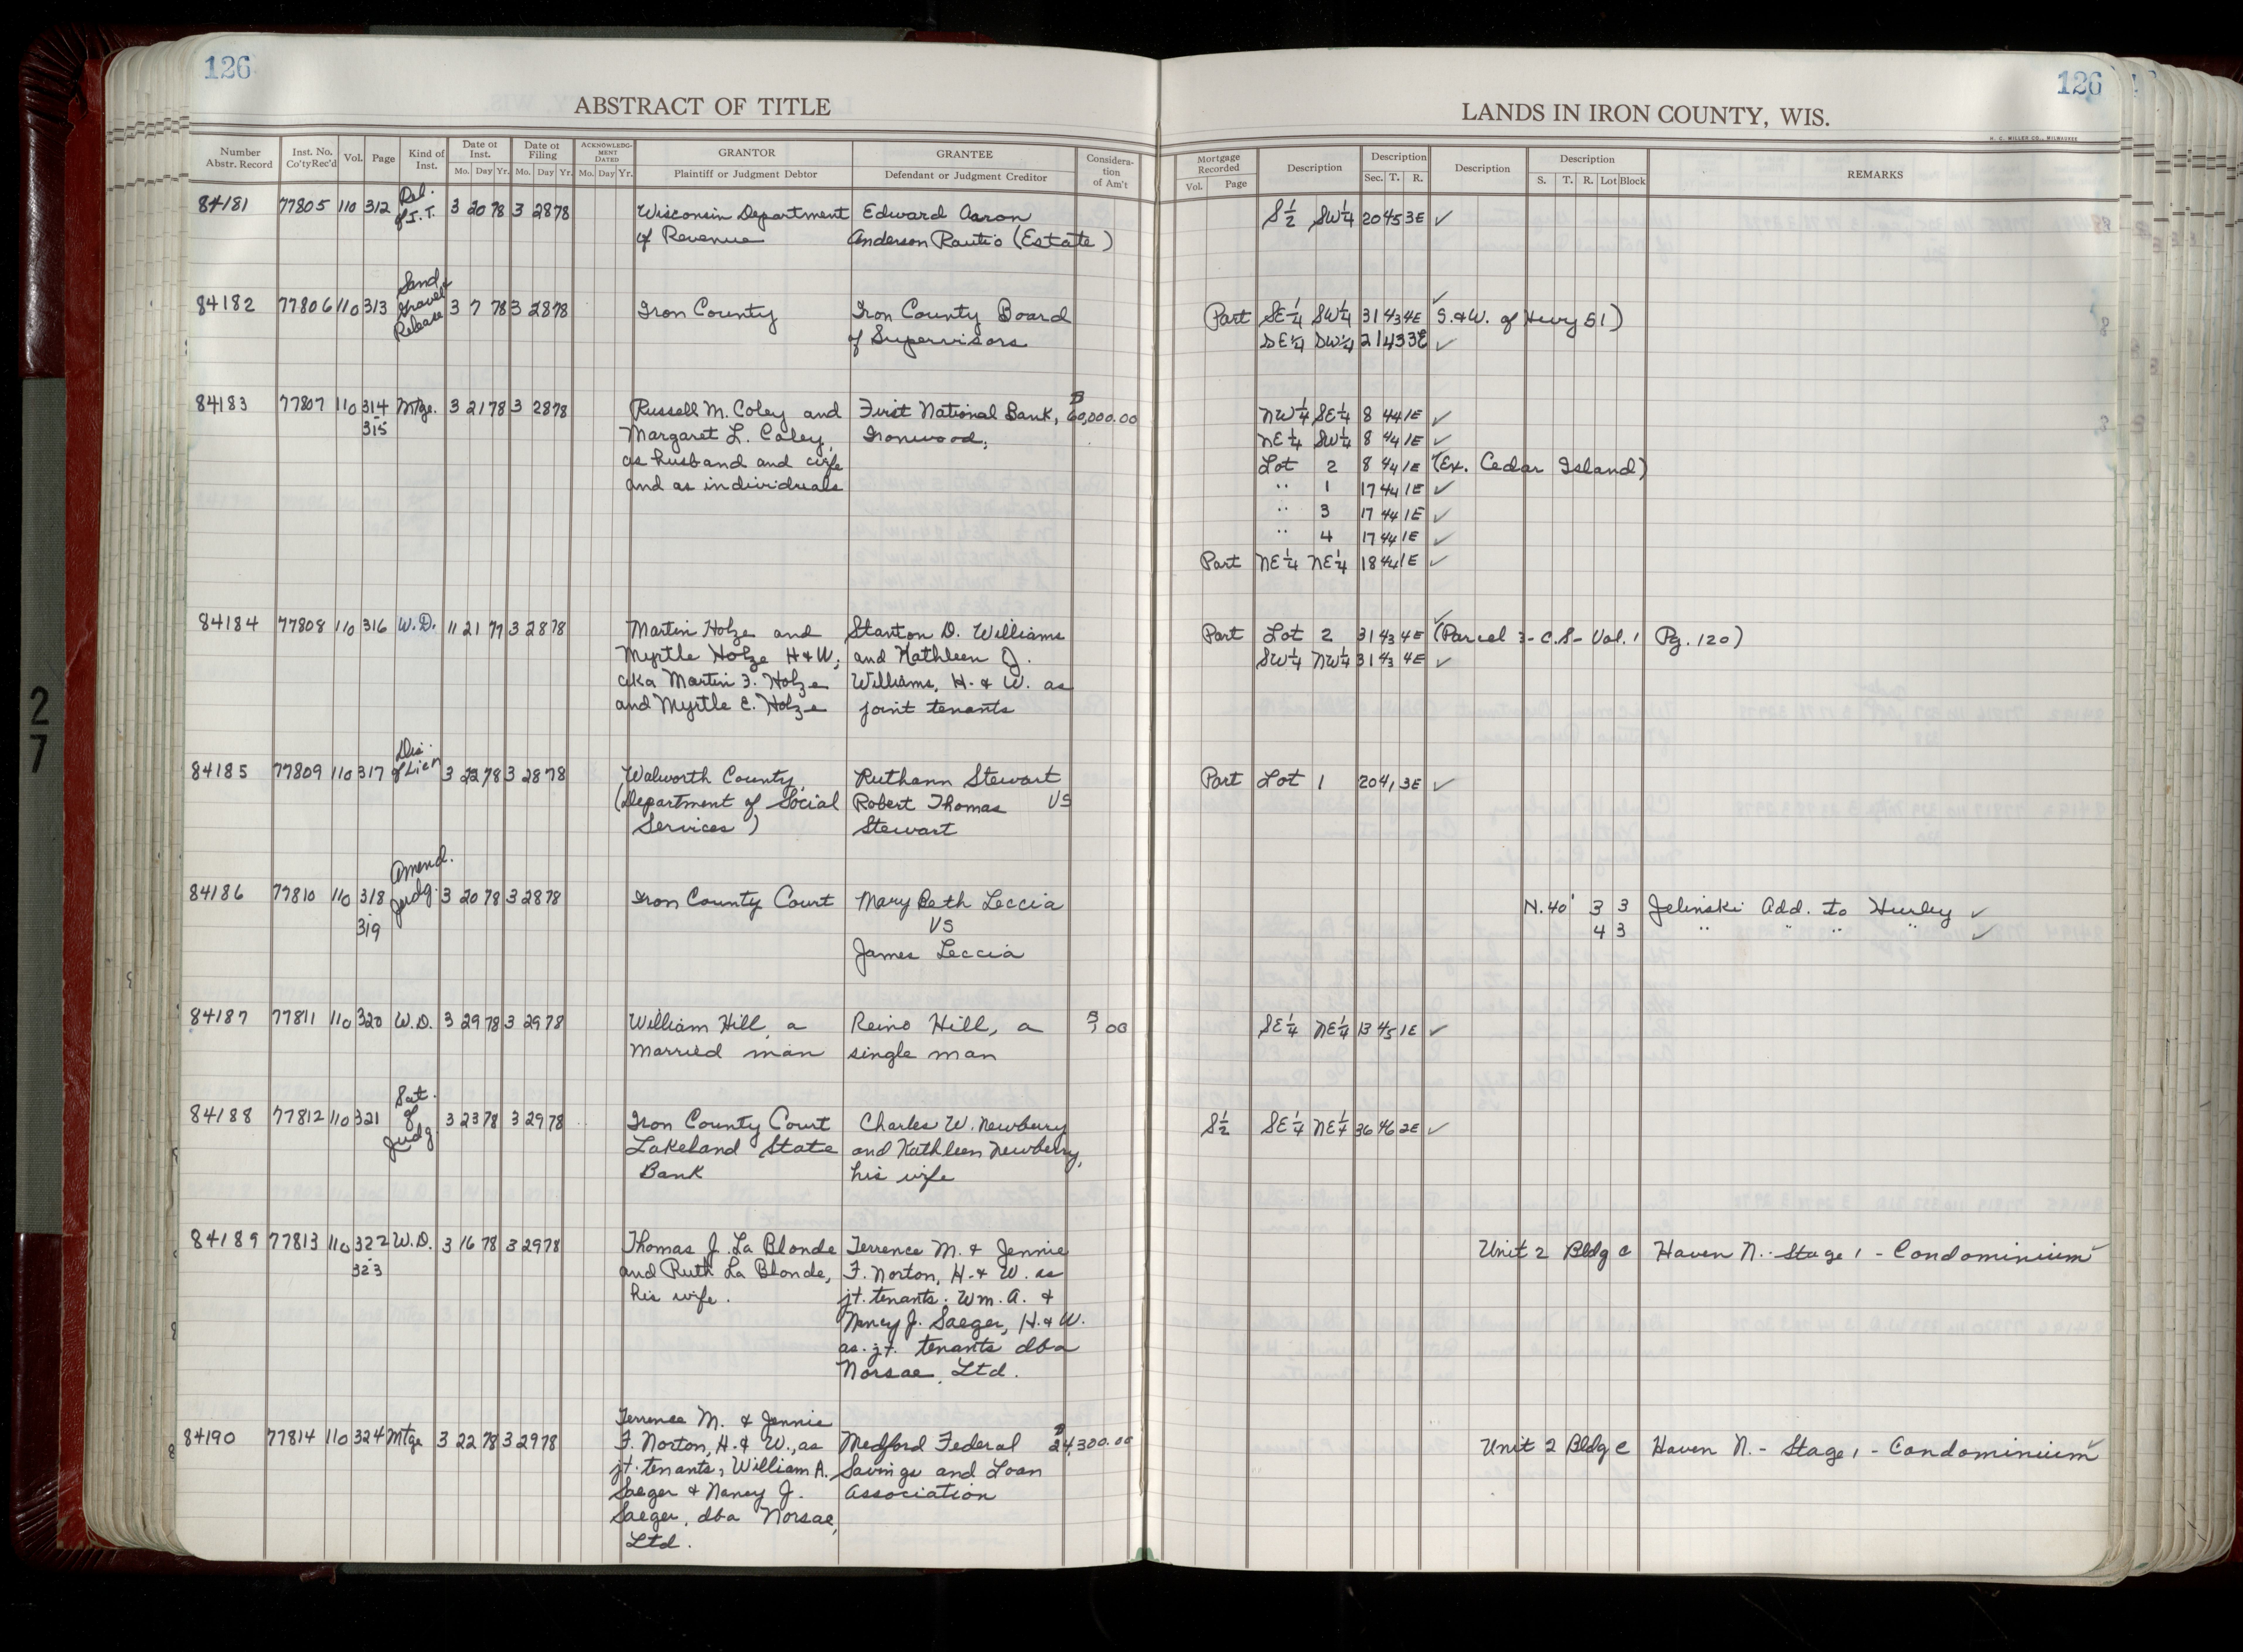 126
ABSTRACT OF TITLE
Number Abstr. Record Inst. No. Co'ty Rec'd Vol. Page Kind of Inst. Date of Inst. Mo. Day Yr. Date of Filing Mo. Day Yr. ACKNOWLEDGMENT DATED Mo. Day Yr. GRANTOR Plaintiff or Judgment Debtor GRANTEE Defendant or Judgment Creditor Consideration of Am't
84181 77805 110 312 Rel. of I.T. 3 20 78 3 28 78 Wisconsin Department Edward Aaron
of Revenue Anderson Rautio (Estate)
84182 77806 110 313 Sand & Gravel Release 3 7 78 3 28 78 Iron County Iron County Board
of Supervisors
84183 77807 110 314 Mtge. 3 21 78 3 28 78 Russell M. Coley and First National Bank, $60,000.00
315 Margaret L. Coley, Ironwood,
as husband and wife
and as individuals
84184 77808 110 316 W.D. 11 21 77 3 28 78 Martin Holze and Stanton D. Williams
Myrtle Holze H & W; and Kathleen J.
aka Martin F. Holze Williams, H. & W. as
and Myrtle E. Holze joint tenants
84185 77809 110 317 Dis. of Lien 3 22 78 3 28 78 Walworth County, Ruthann Stewart
(Department of Social Robert Thomas VS
Services) Stewart
84186 77810 110 318 Amend. Judg. 3 20 78 3 28 78 Iron County Court Mary Beth Leccia
319 VS
James Leccia
84187 77811 110 320 W.D. 3 29 78 3 29 78 William Hill, a Reino Hill, a $1.00
married man single man
84188 77812 110 321 Sat. of Judg 3 23 78 3 29 78 Iron County Court Charles W. Newbury
Lakeland State and Kathleen Newberry,
Bank his wife
84189 77813 110 322 W.D. 3 16 78 3 29 78 Thomas J. La Blonde Terrence M. & Jennie
323 and Ruth La Blonde, F. Norton, H. & W. as
his wife. jt. tenants. Wm. A. &
Nancy J. Saeger, H. & W.
as. jt. tenants dba
Norsae, Ltd.
Terrence M. & Jennie
84190 77814 110 324 Mtge 3 22 78 3 29 78 F. Norton, H. & W., as Medford Federal $24,300.00
jt. tenants, William A. Savings and Loan
Saeger & Nancy J. Association
Saeger, dba Norsae,
Ltd.
126
LANDS IN IRON COUNTY, WIS.
H. C. MILLER CO., MILWAUKEE
Mortgage Recorded Vol. Page Description Description Sec. T. R. Description Description S. T. R. Lot Block REMARKS
S½ SW¼ 20 45 3E ✓
Part SE¼ SW¼ 31 43 4E ✓ S. & W. of Hwy 51)
SE¼ SW¼ 21 43 3E ✓
NW¼ SE¼ 8 44 1E ✓
NE¼ SW¼ 8 44 1E ✓
Lot 2 8 44 1E ✓ (Ex. Cedar Island)
" 1 17 44 1E ✓
" 3 17 44 1E ✓
" 4 17 44 1E ✓
Part NE¼ NE¼ 18 44 1E ✓
Part Lot 2 31 43 4E ✓ (Parcel 3 - C.S - Vol. 1 Pg. 120)
SW¼ NW¼ 31 43 4E ✓
Part Lot 1 20 41 3E ✓
N. 40' 3 3 Jelinski Add. to Hurley ✓
4 3 " " " " ✓
SE¼ NE¼ 13 45 1E ✓
S½ SE¼ NE¼ 36 46 2E ✓
Unit 2 Bldg C Haven N. - Stage 1 - Condominium ✓
Unit 2 Bldg C Haven N. - Stage 1 - Condominium ✓
27